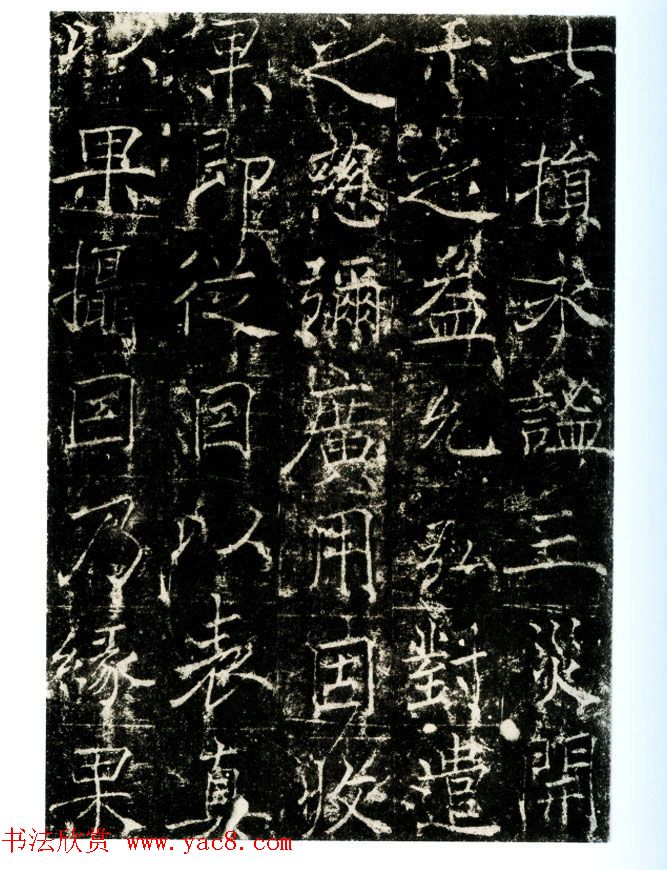 七損永謐三災開
示之益允弘對遣
之慈彌廣用因收
果即從因以表真
以果攝因乃緣果
书法欣赏 www.yac8.com